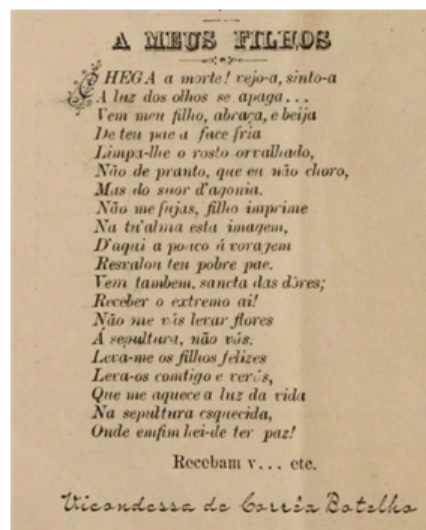 A MEUS FILHOS
CHEGA a morte! vejo-a, sinto-a
A luz dos olhos se apaga...
Vem meu filho, abraça, e beija
De teu pae a face fria
Limpa-lhe o rosto orvalhado,
Não de pranto, que eu não choro,
Mas do suor d'agonia.
Não me fujas, filho imprime
Na tu'alma esta imagem,
D'aqui a pouco á voragem
Resvalou teu pobre pae.
Vem tambem, sancta das dôres;
Receber o extremo ai!
Não me vás levar flores
Á sepultura, não vás.
Leva-me os filhos felizes
Leva-os comtigo e verás,
Que me aquece a luz da vida
Na sepultura esquecida,
Onde emfim hei-de ter paz!
Recebam v... etc.
Vicondessa de Corrêa Botelho